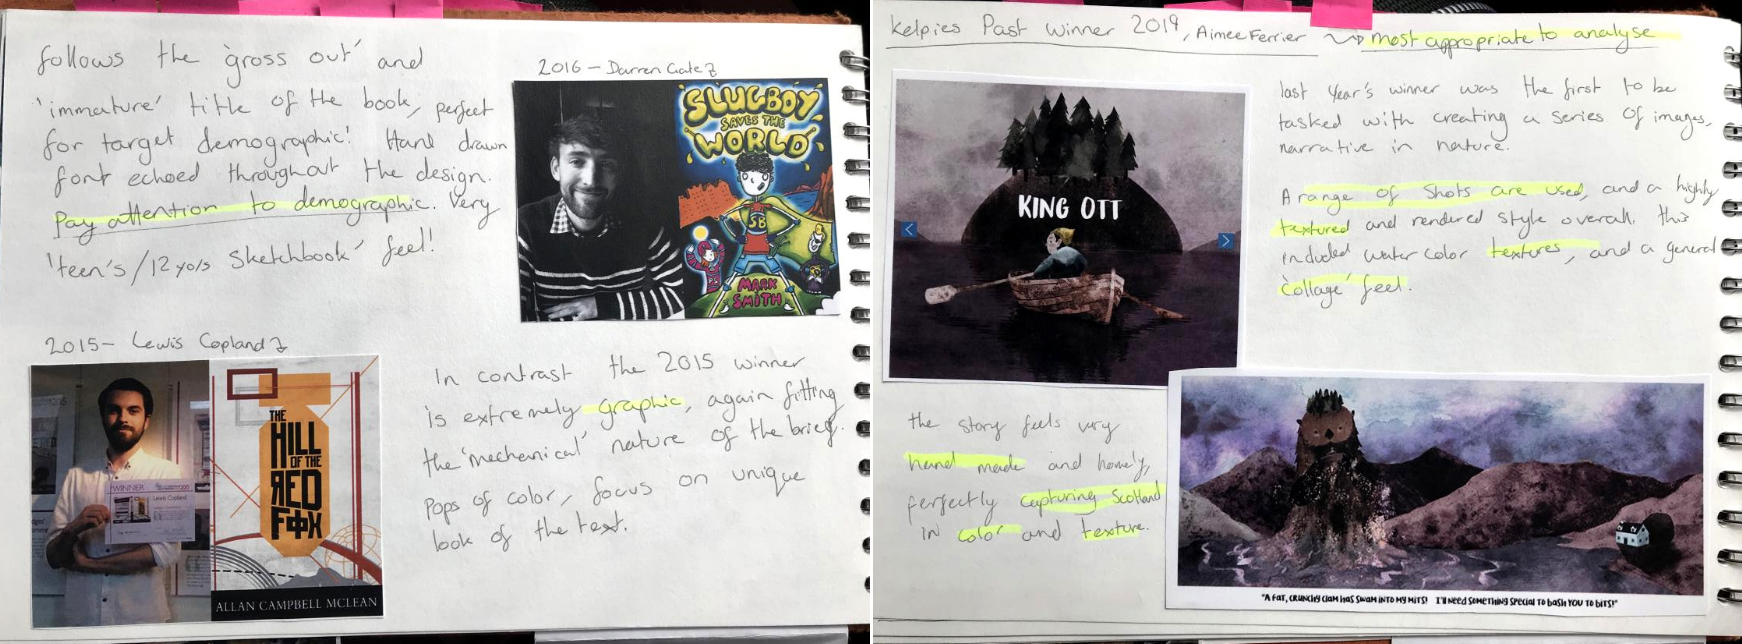 follows the 'gross out' and
'immature' title of the book, perfect
for target demographic! Hand drawn
font echoed throughout the design.
Pay attention to demographic. Very
'teen's/12 yols sketchbook' feel!
2016 - Darren Gate
SLUGBOY
SAVES THE
WORLD
SB
MARK
SMITH
2015 - Lewis Copland
WINNER
Lewis Copland
THE
HILL
OF THE
RED
FOX
ALLAN CAMPBELL MCLEAN
In contrast the 2015 winner
is extremely graphic, again fitting
the 'mechanical' nature of the brief.
Pops of color, focus on unique
look of the text.
Kelpies Past Winner 2019, Aimee Ferrier → most appropriate to analyse
KING OTT
last year's winner was the first to be
tasked with creating a series of images,
narrative in nature.
A range of shots are used, and a highly
textured and rendered style overall. this
included water color textures, and a general
'collage' feel.
the story feels very
hand made and homely,
perfectly capturing Scotland
in color and texture.
"A FAT, CRUNCHY CLAM HAS SWAM INTO MY MITS! I'LL NEED SOMETHING SPECIAL TO BASH YOU TO BITS!"